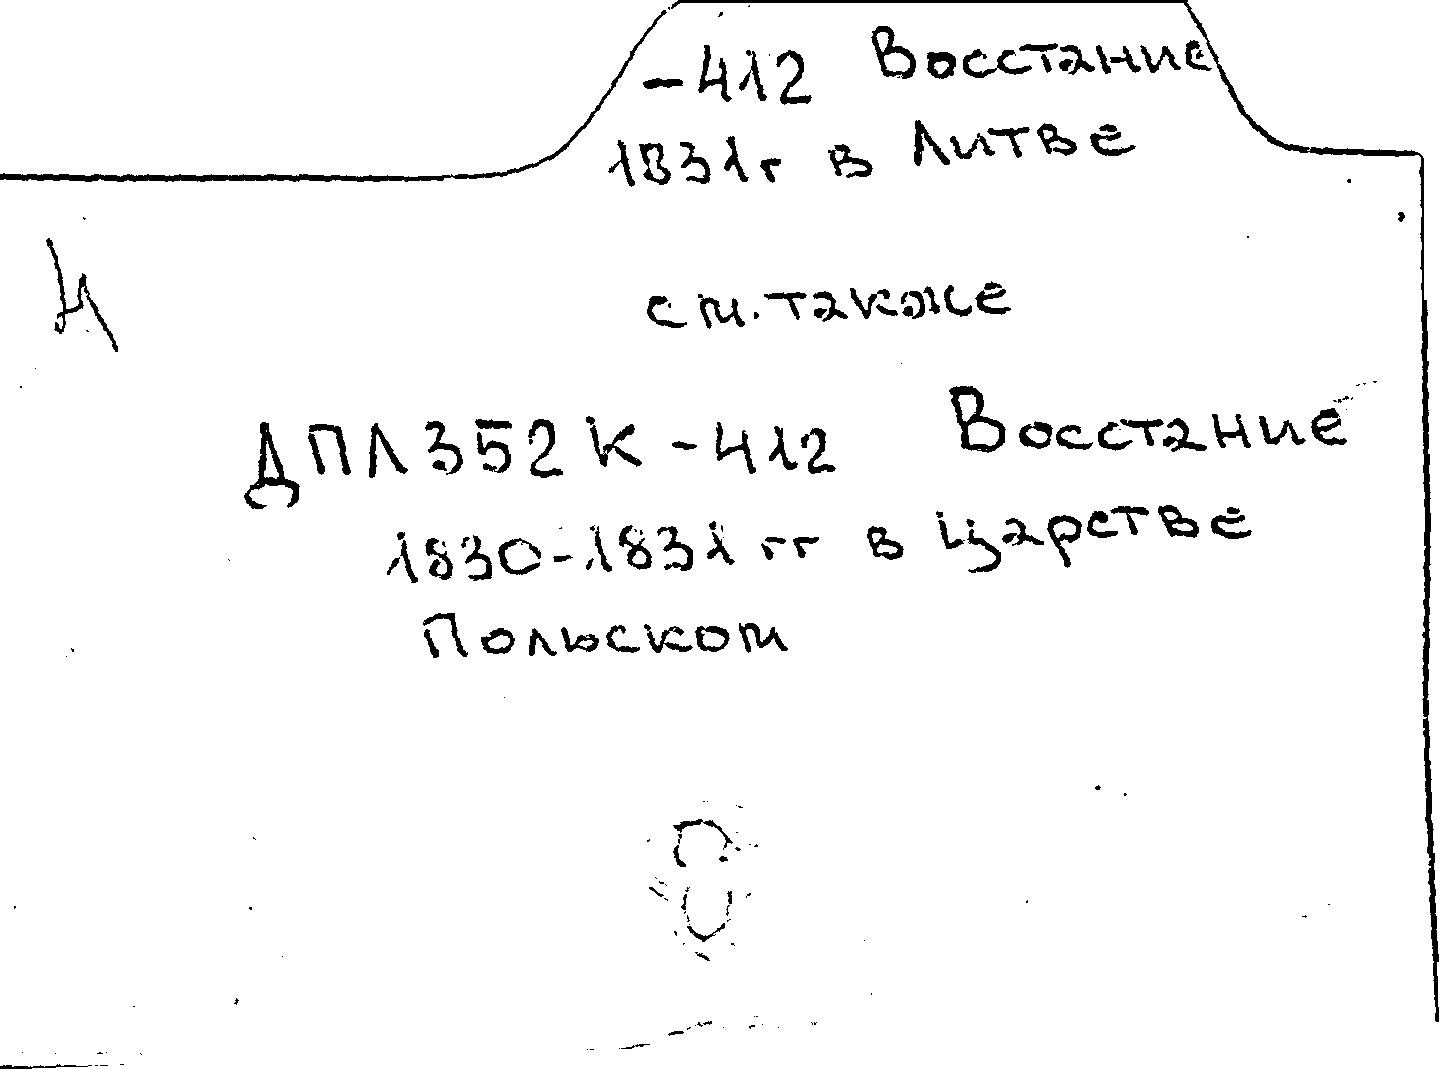 -412 Восстание
1831г в Литве
см. также
ДПЛ352К-412 Восстание
1830-1831 гг в Царстве
Польском